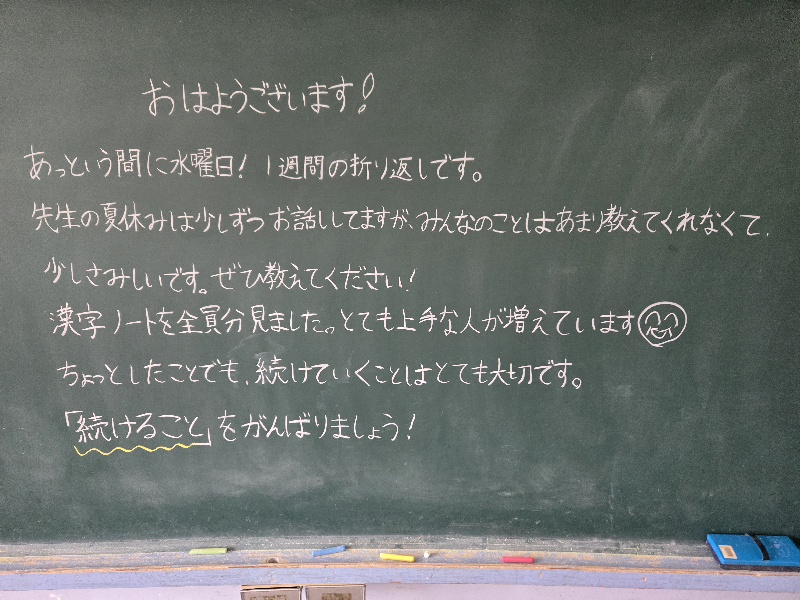 おはようございます!
あっという間に水曜日! 1週間の折り返しです。
先生の夏休みは少しずつお話ししてますが、みんなのことはあまり教えてくれなくて、
少しさみしいです。ぜひ教えてください!
漢字ノートを全員分見ました。とても上手な人が増えています
ちょっとしたことでも、続けていくことはとても大切です。
「続けること」をがんばりましょう!